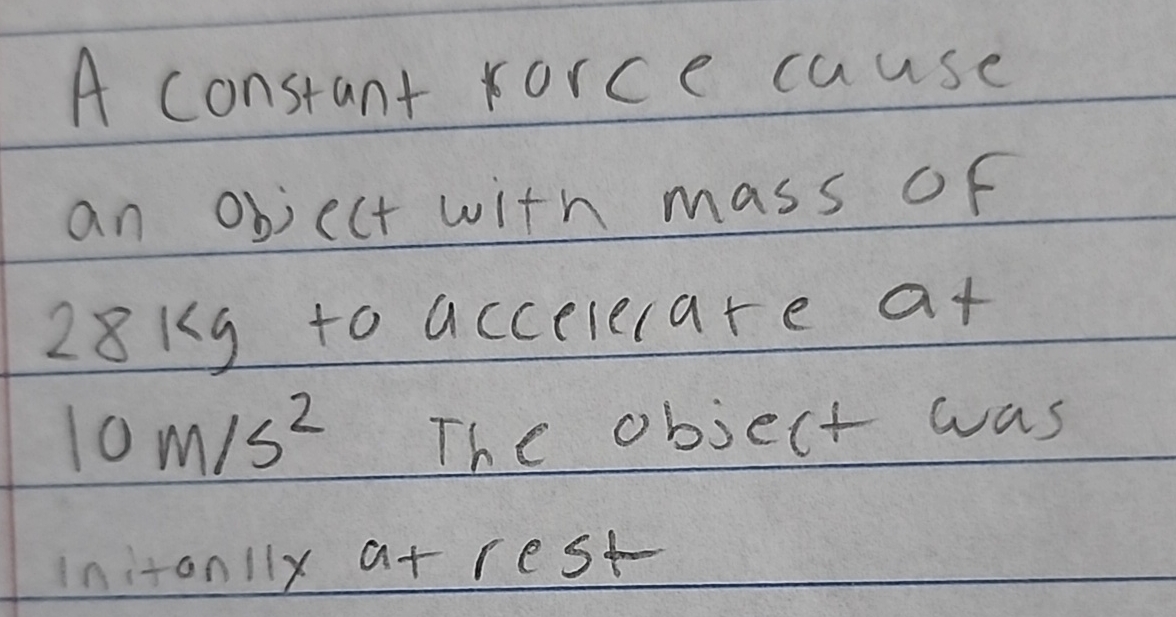 A constant force cause
an object with mass of
28 Kg to accelerate at
10 m/s² The object was
initanlly at rest